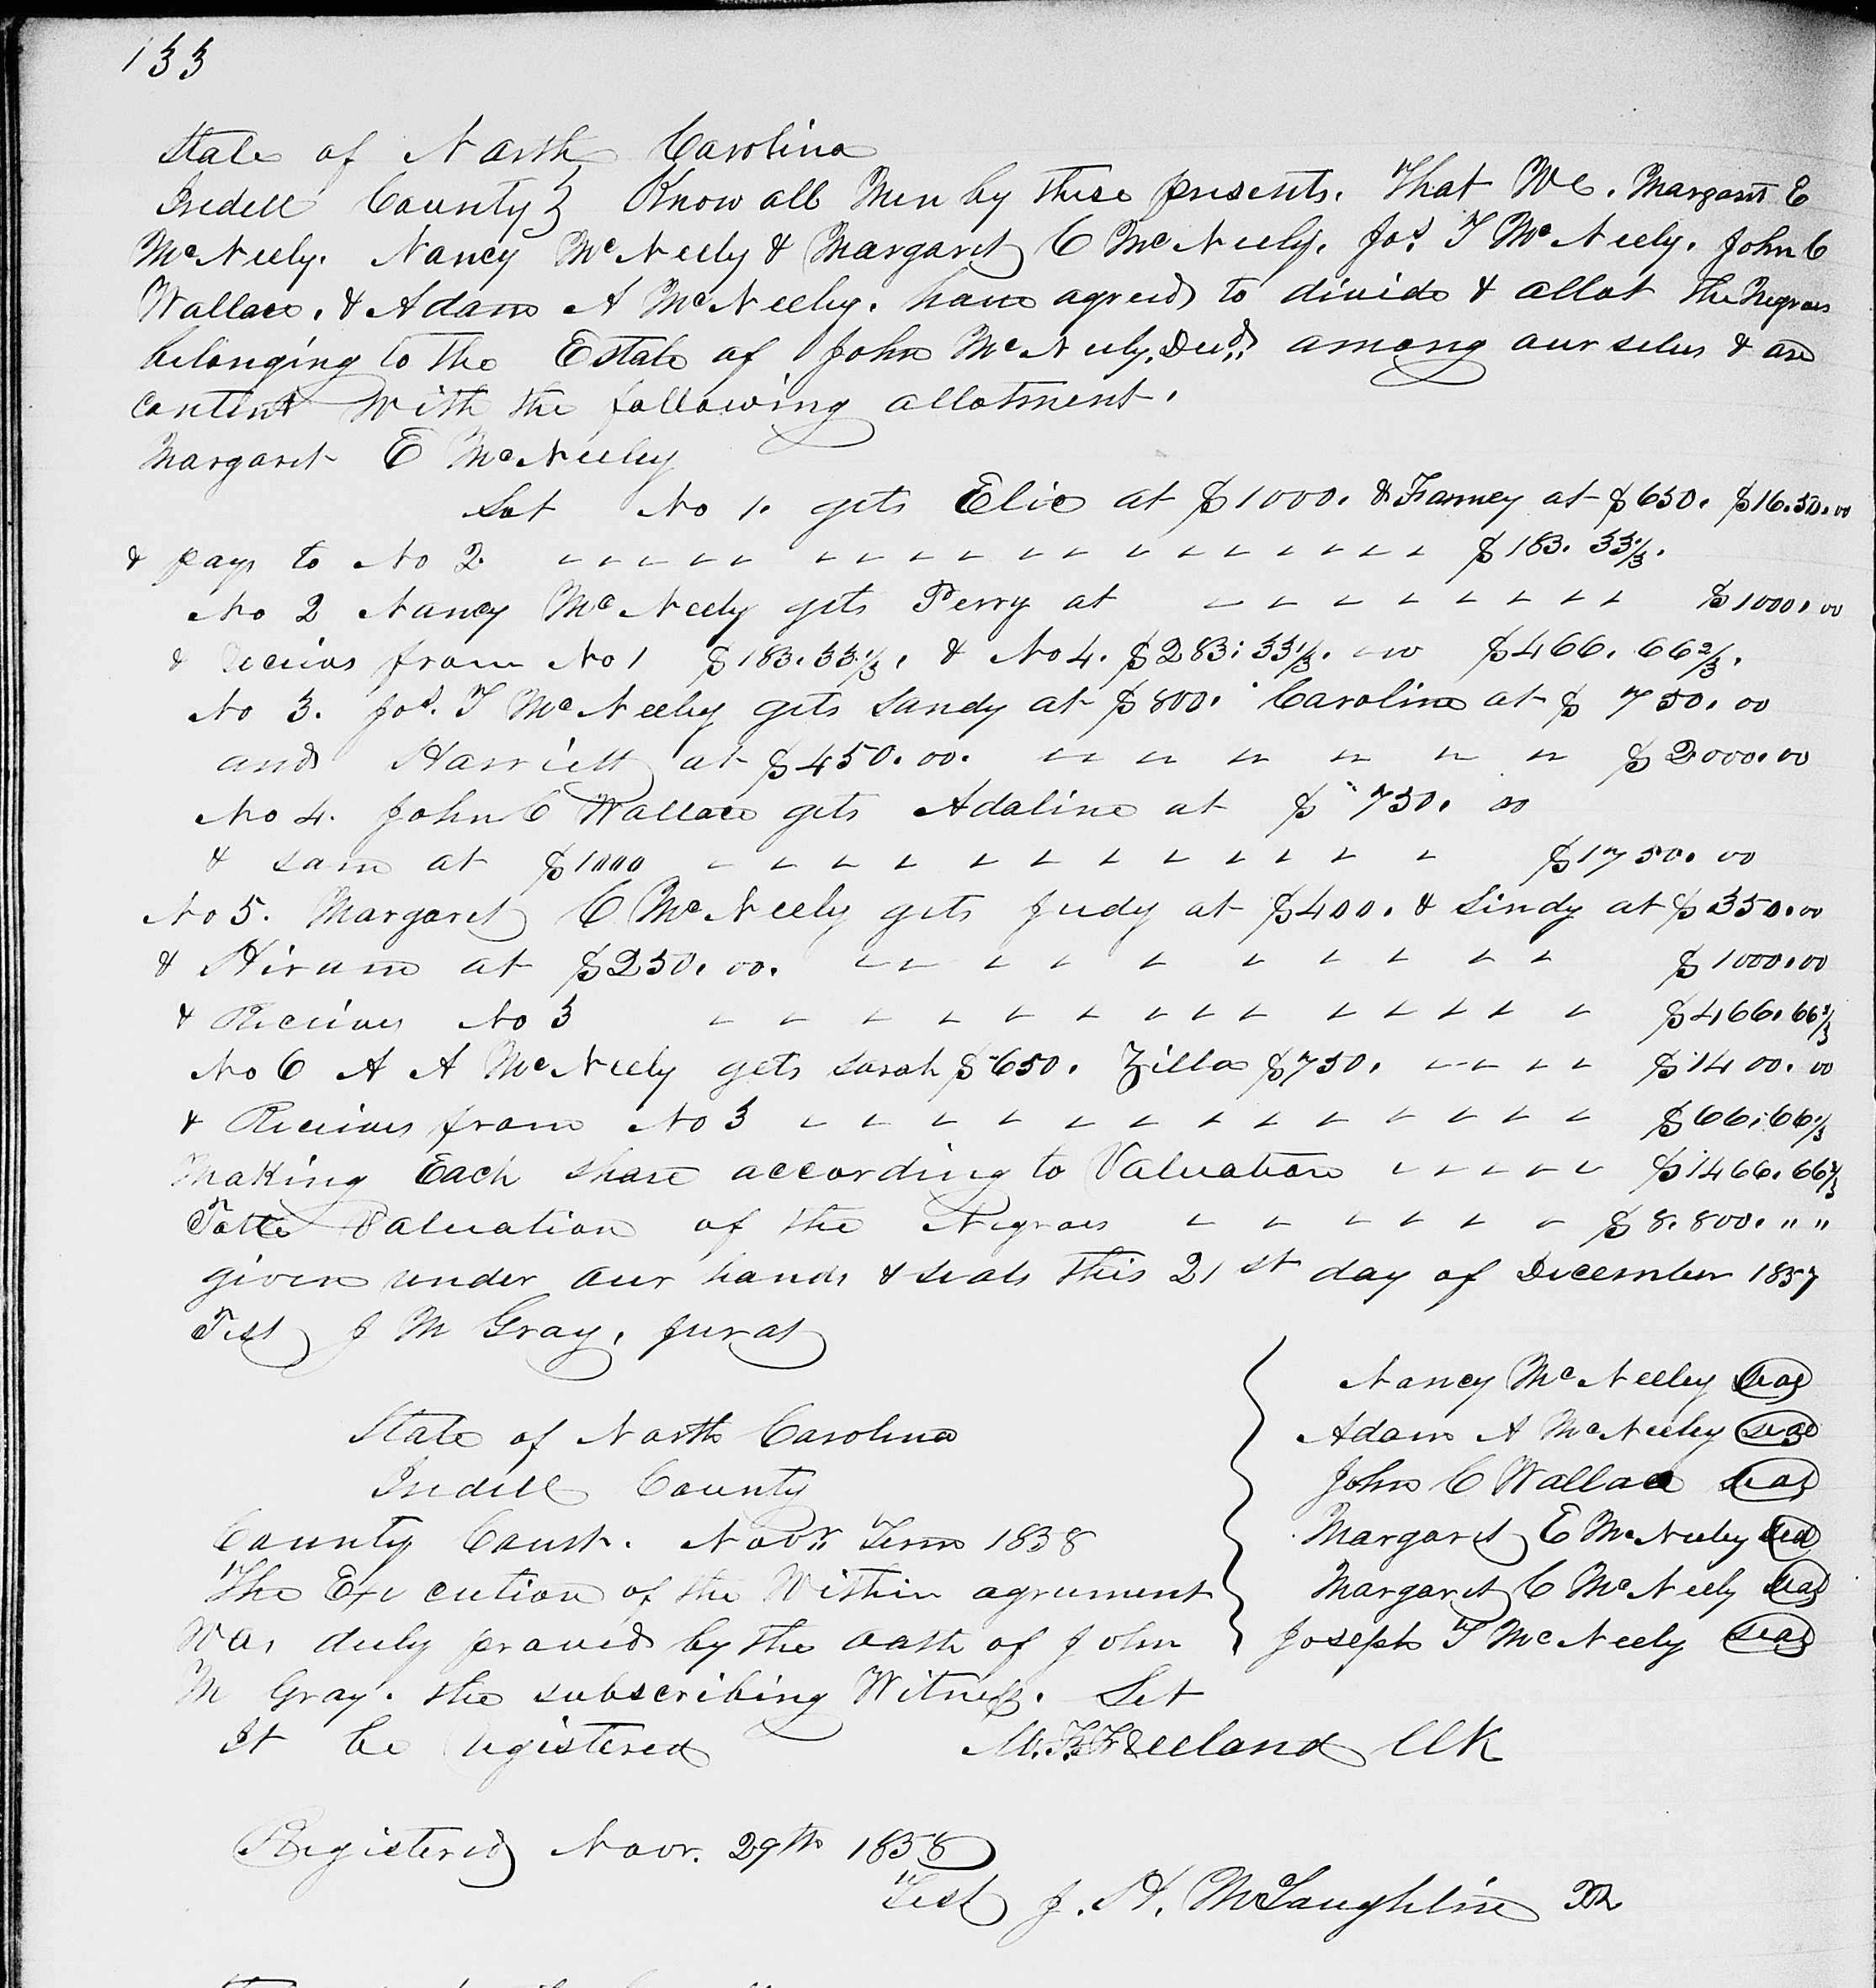 133
State of North Carolina
Iredell County } Know all Men by these presents. That We. Margaret E
McNeely. Nancy McNeely & Margaret C McNeely. Jos. T McNeely. John C
Wallace. & Adam A McNeely. have agreed to divide & allot the Negroes
belonging to the Estate of John McNeely, Decd. among our selves & are
content With the following allotment.
Margaret E McNeeley
Lot No 1. gets Elic at $1000. & Fanney at $650. $16.50.00
& pays to No 2 $183.33 1/3.
No 2 Nancy McNeely gets Perry at $1000.00
& Receives from No 1 $183.33 1/3. & No 4. $283:33 1/3. $466.66 2/3.
No 3. Jos. T McNeeley gets Sandy at $800. Caroline at $750.00
and Harriett at $450.00. $2000.00
No 4. John C Wallace gets Adaline at $750.00
& Sam at $1000 $1750.00
No 5. Margaret C McNeely gets Judy at $400. & Lindy at $350.00
& Hiram at $250.00. $1000.00
& Receives No 3 $466.66 2/3
No 6 A A McNeely gets Sarah $650. Zilla $750. $1400.00
& Receives from No 3 $66:66 1/3
Making Each share according to Valuation $1466.66 2/3
Valuation of the Negroes $8.800. " "
given under our hands & seals this 21st day of December 1857
Test J M Gray. Jurat
Nancy McNeeley seal
State of North Carolina
Adam A McNeeley seal
Iredell County
John C Wallace seal
County Court. Novr. Term 1858
Margaret E McNeeley seal
The Execution of the Within agrument
Margaret C McNeely seal
Was duly proved by the oath of John
Joseph T McNeely seal
M Gray. the subscribing Witness. Let
It be registered
Freeland Clk
Registered Novr. 29th 1858
Test J. H. McLaughlin